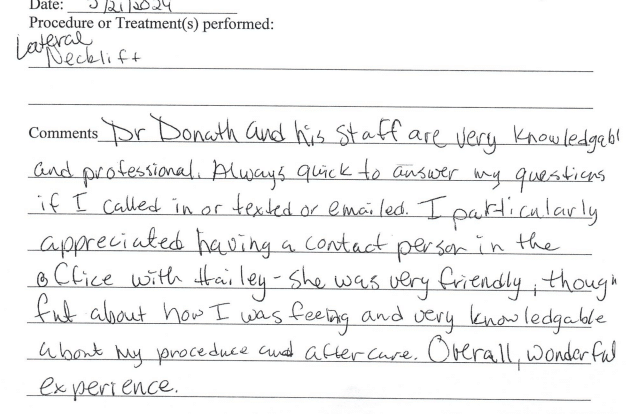 Date: 5/21/2024
Procedure or Treatment(s) performed:
Lateral
Necklift
Comments Dr Donath and his staff are very knowledgabl
and professional. Always quick to answer my questions
if I called in or texted or emailed. I particularly
appreciated having a contact person in the
office with Hailey - she was very friendly, though
ful about how I was feeling and very knowledgable
about my procedure and aftercare. Overall, wonderful
experience.